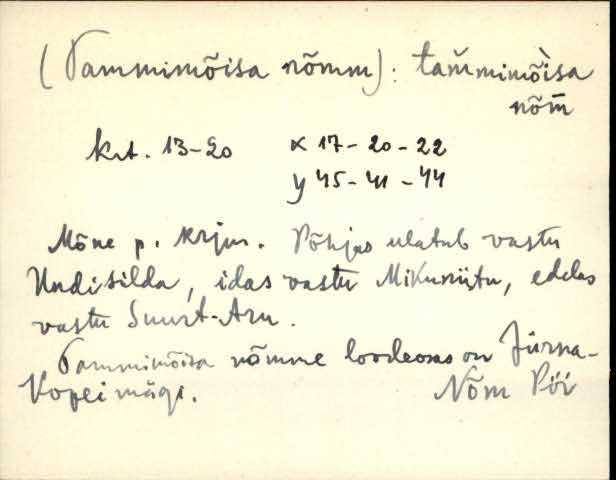 (Tammimõisa nõmm): tam̆mimõ̀isa
nõm̄
krt. 13-20 x 17-20-22
y 45-41-44
Mõne p. krjus. Põhjas ulatub vastu
Undisilda, idas vastu Mikuniitu, edelas
vastu Suurt-Aru.
Tammimõisa nõmme loodeosas on Jürna-
Kopei mägi. Nõm Pöi